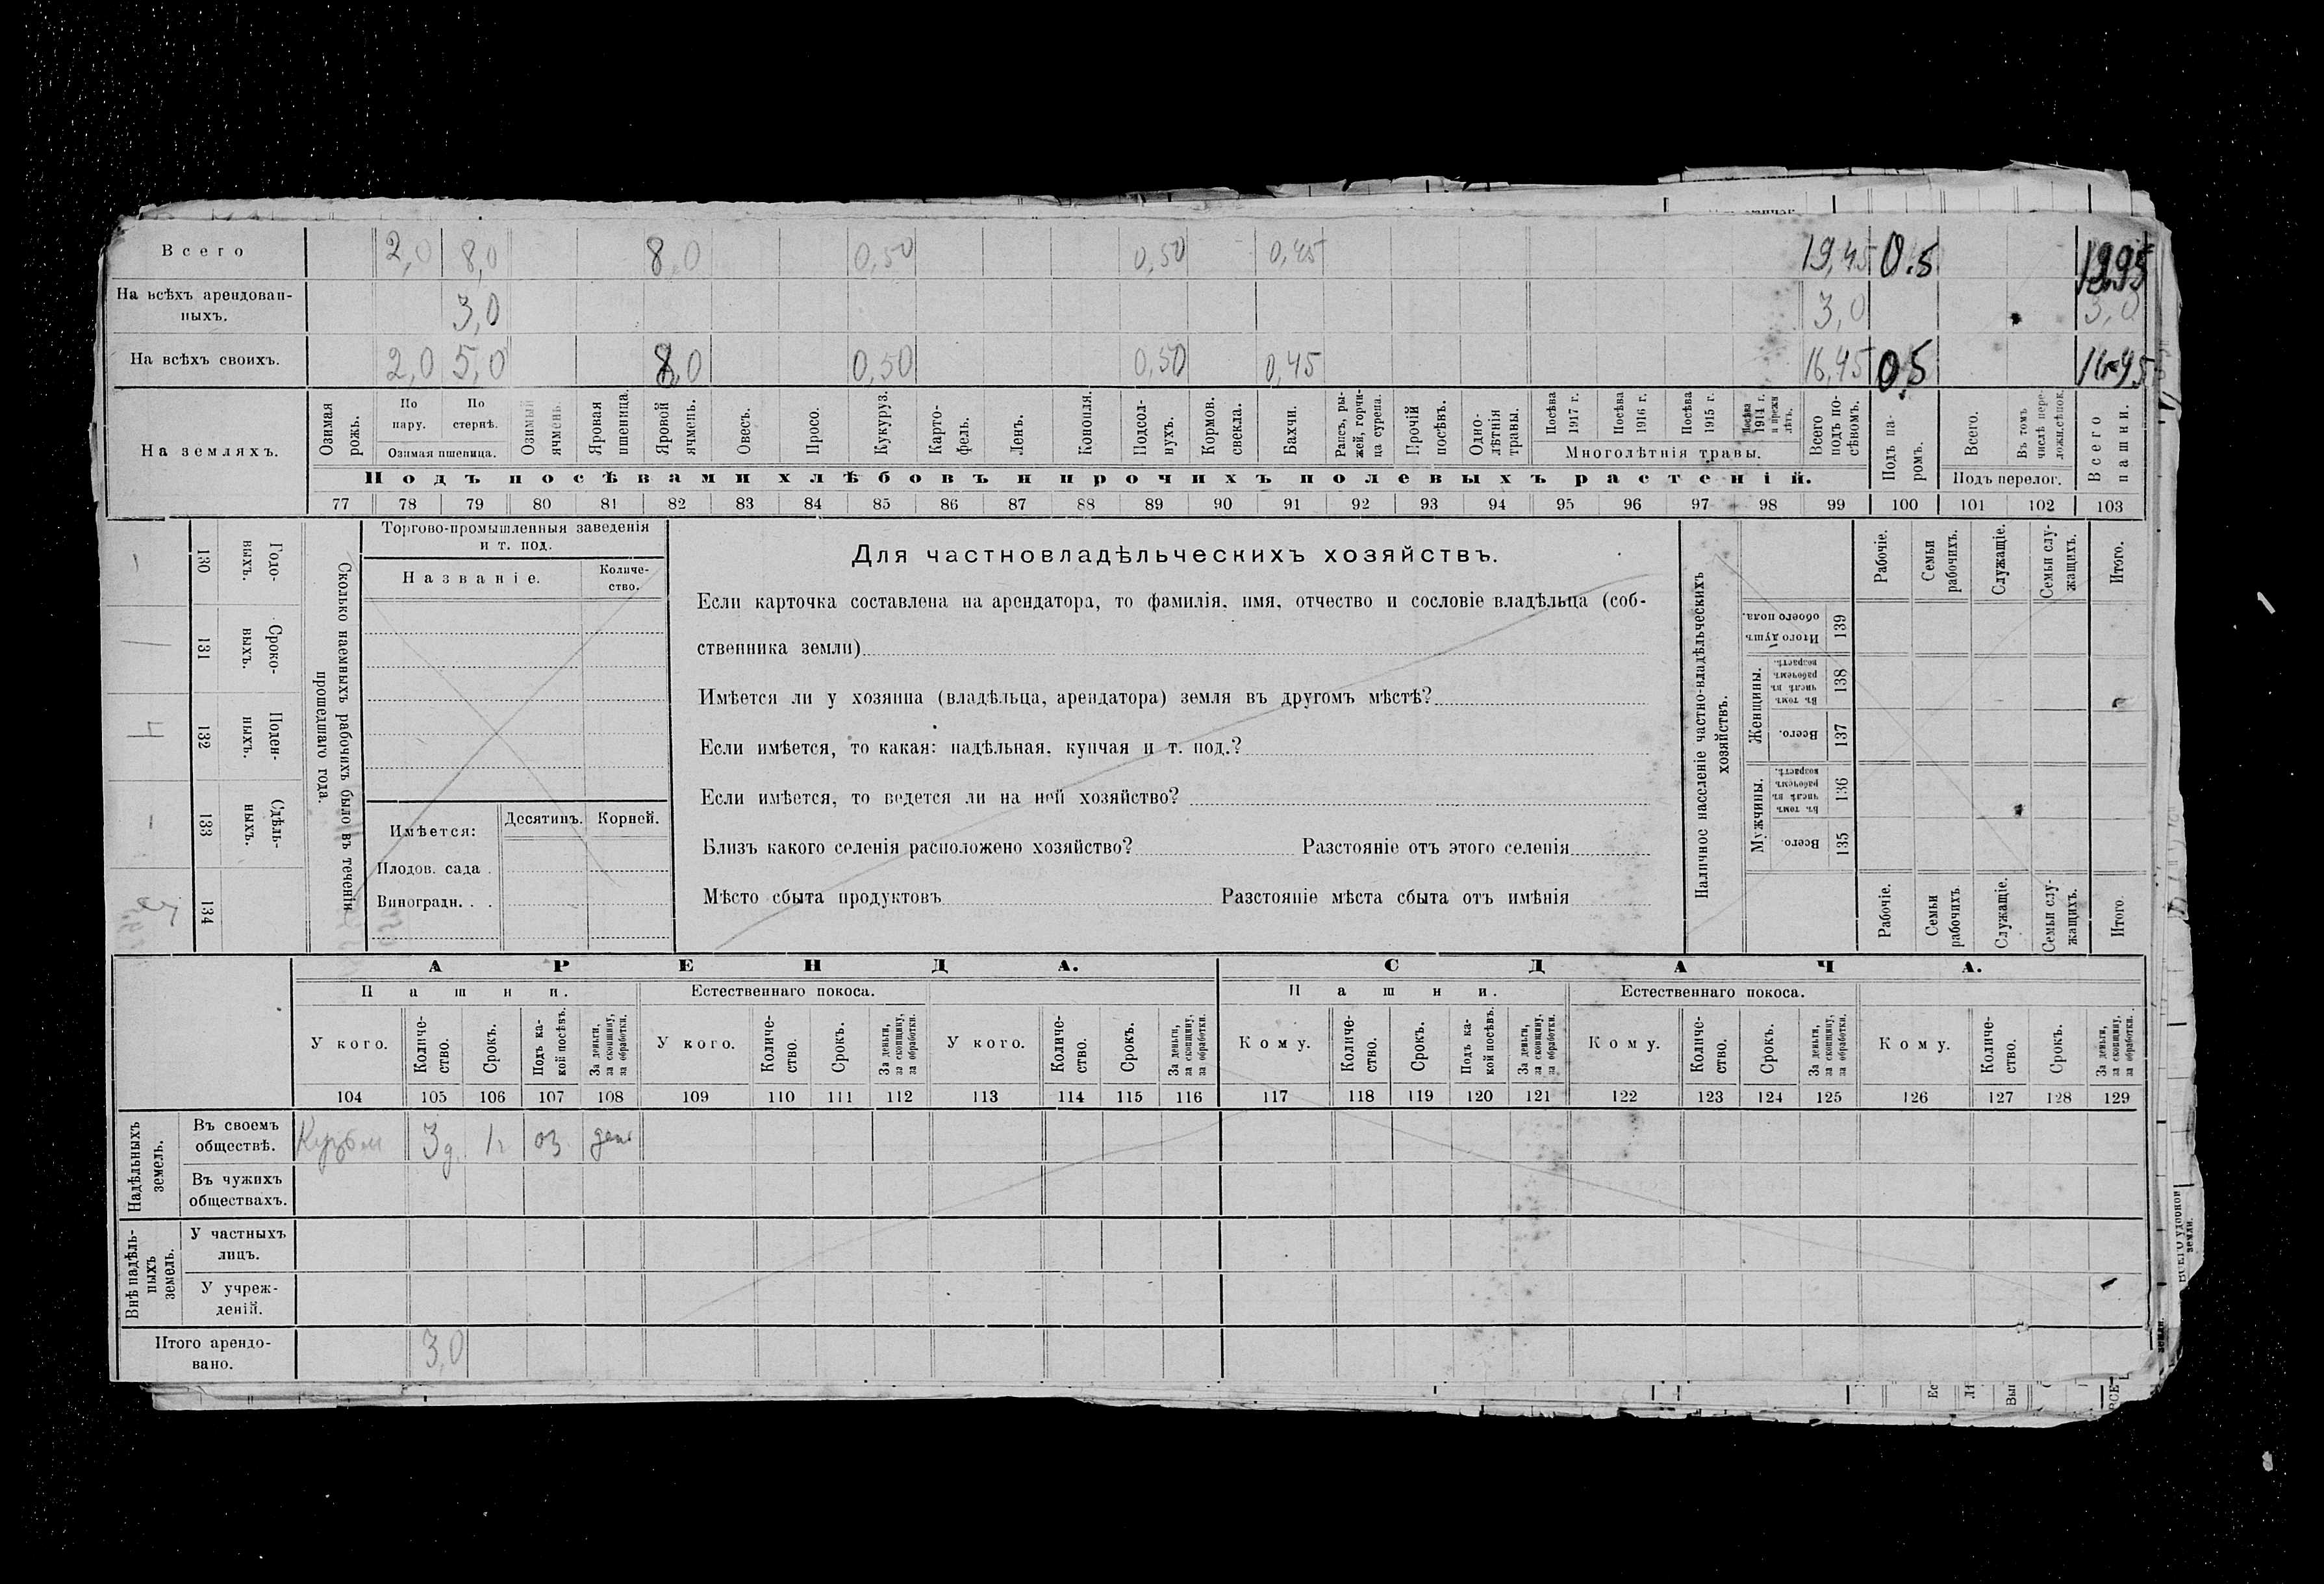 Всего 2,0 8,0 8,0 0,50 0,50 0,45 19,45 0.5
На всѣхъ арендован-
ныхъ. 3,0 3,0 3,0
На всѣхъ своихъ. 2,0 5,0 8,0 0,50 0,50 0,45 16,45 0,5
На земляхъ.
Озимая
рожь.
По
пару.
По
стернѣ.
Озимая пшеница.
Озимый
ячмень.
Яровая
пшеница.
Яровой
ячмень.
Овесъ.
Просо.
Кукуруз.
Карто-
фель.
Ленъ.
Конопля.
Подсол-
нухъ.
Кормов.
свекла.
Бахчи.
Рапсъ, ры-
жей, горчи-
ца сурепа.
Прочій
посѣвъ.
Одно-
лѣтнія
травы.
Посѣва
1917 г.
Посѣва
1916 г.
Посѣва
1915 г.
Посѣва
1914 г.
и прежн
лѣтъ.
Многолѣтнія травы.
Всего
подъ по-
сѣвомъ.
Подъ па-
ромъ.
Всего.
Въ томъ
числѣ пере-
ложн.сѣнок.
Подъ перелог.
Всего
пашни.
Подъ посѣвами хлѣбовъ и прочихъ полевыхъ растеній.
77 78 79 80 81 82 83 84 85 86 87 88 89 90 91 92 93 94 95 96 97 98 99 100 101 102 103
Сколько наемныхъ рабочихъ было въ теченіи
прошедшаго года.
Годо-
выхъ.
130
Сроко-
выхъ.
131
Поден-
ныхъ.
132
Сдѣль-
ныхъ.
133
134
Торгово-промышленныя заведенія
и т. под.
Названіе.
Количе-
ство.
Имѣется:
Десятинъ. Корней.
Плодов. сада .
Виноградн. . .
Для частновладѣльческихъ хозяйствъ.
Если карточка составлена на арендатора, то фамилія, имя, отчество и сословіе владѣльца (соб-
ственника земли)
Имѣется ли у хозяина (владѣльца, арендатора) земля въ другомъ мѣстѣ?
Если имѣется, то какая: надѣльная, купчая и т. под.?
Если имѣется, то ведется ли на ней хозяйство?
Близъ какого селенія расположено хозяйство? Разстояніе отъ этого селенія
Мѣсто сбыта продуктовъ Разстояніе мѣста сбыта отъ имѣнія
Наличное населеніе частно-владѣльческихъ
хозяйствъ.
Рабочіе.
Семьи
рабочихъ.
Служащіе.
Семьи слу-
жащихъ.
Итого.
Итого душъ
обоего пола.
139
Женщины.
Въ томъ
числѣ въ
рабочемъ
возрастѣ.
138
Всего.
137
Мужчины.
Въ томъ
числѣ въ
рабочемъ
возрастѣ.
136
Всего.
135
Рабочіе.
Семьи
рабочихъ.
Служащіе.
Семьи слу-
жащихъ.
Итого.
АРЕНДА. СДАЧА.
Пашни. Естественнаго покоса. Пашни. Естественнаго покоса.
У кого.
Количе-
ство.
Срокъ.
Подъ ка-
кой посѣвъ.
За деньги,
за скопщину,
за обработки.
У кого.
Количе-
ство.
Срокъ.
За деньги,
за скопщину,
за обработки.
У кого.
Количе-
ство.
Срокъ.
За деньги,
за скопщину,
за обработки.
Кому.
Количе-
ство.
Срокъ.
Подъ ка-
кой посѣвъ.
За деньги,
за скопщину,
за обработки.
Кому.
Количе-
ство.
Срокъ.
За деньги,
за скопщину,
за обработки.
Кому.
Количе-
ство.
Срокъ.
За деньги,
за скопщину,
за обработки.
104 105 106 107 108 109 110 111 112 113 114 115 116 117 118 119 120 121 122 123 124 125 126 127 128 129
Надѣльныхъ
земель.
Въ своемъ
обществѣ. 3д. 1г оз
Въ чужихъ
обществахъ.
Внѣ надѣль-
ныхъ
земель.
У частныхъ
лицъ.
У учреж-
деній.
Итого арендо-
вано. 3,0